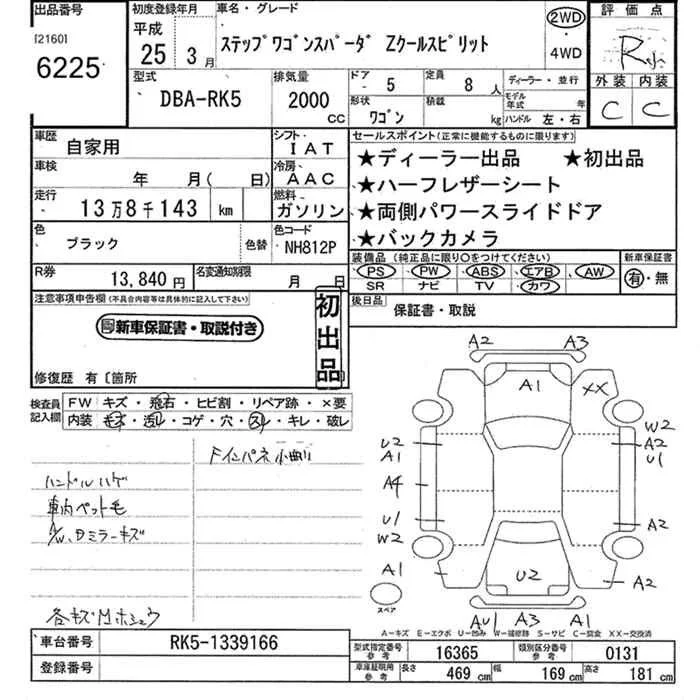 出品番号 初度登録年月 車名・グレード 評価点
[2160] 平成
6225 25年 3月 ステップワゴンスパーダ Zクールスピリット 2WD・4WD R小
型式 排気量 ドア・5 定員 8人 ディーラー・並行 外装 内装
DBA-RK5 2000CC 形状 ワゴン 積載 kg モデル年式 年 ハンドル 左・右 C C
車歴 自家用 シフト IAT セールスポイント(正常に機能するものに限ります)
車検 年 月( 日) 冷房 AAC ★ディーラー出品 ★初出品
走行 13万8千143 km 燃料 ガソリン ★ハーフレザーシート
★両側パワースライドドア
色 ブラック 色替 色コード NH812P ★バックカメラ
装備品(純正品に限り○をつけてください) 新車保証書
R券 13,840円 名変通知期限 月 日 PS PW ABS エアB AW 有・無
SR ナビ TV カワ
注意事項申告欄(不具合内容等は具体的に記入して下さい) 初出品 後日品 保証書・取説
新車保証書・取説付き
修復歴 有〔箇所 〕
検査員記入欄 FW キズ・飛石・ヒビ割・リペア跡・×要
内装 キズ・汚れ・コゲ・穴・スレ・キレ・破レ
Fインパネ小曲り
ハンドルハゲ
車内ペット毛
A/W、Dミラーキズ
各キズMホシュウ
A2 A3
A1 XX
W2
U2 A2
A1 U1
A4
U1 A2
W2
A1 U2 A2
スペア
AU1 A3 A1
A―キズ E―エクボ U―凹み W―補修跡 S―サビ C―腐食 XX―交換済
車台番号 RK5-1339166 型式指定番号 参考 16365 類別区分番号 参考 0131
登録番号 車庫証明用 参考 長さ 469 cm 幅 169 cm 高さ 181 cm